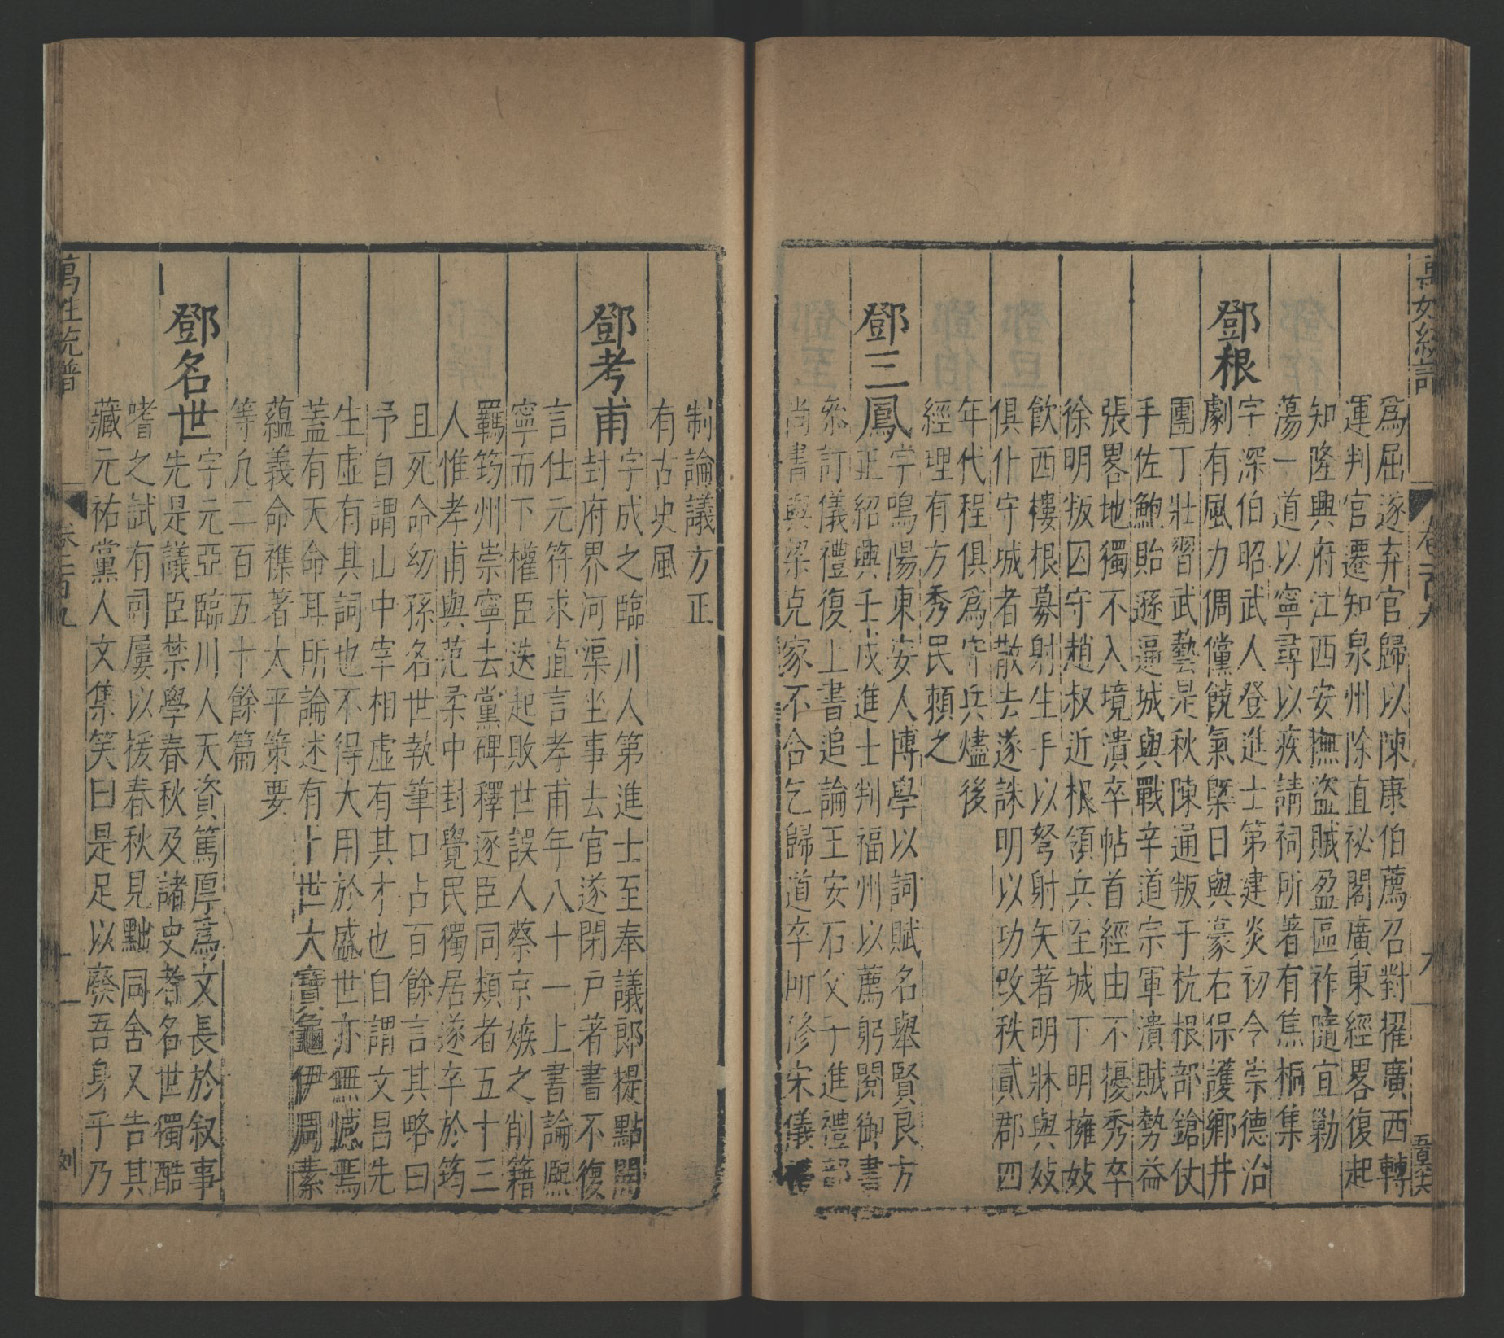 爲屈遂弃官歸以陳康伯薦召對擢廣西轉
運判官遷知泉州除直祕閣廣東經畧復起
知隆興府江西安撫盗賊盈區祚隨宜勦
蕩一道以寧尋以疾請祠所著有焦桐集
鄧根
字深伯昭武人登進士第建炎初令崇德治
劇有風力倜儻饒氣槩日與豪右保護鄉井
團丁壯習武藝是秋陳通叛于杭根部鎗仗
手佐鮑貽遜逼城與戰辛道宗軍潰賊勢益
張畧地獨不入境潰卒帖首經由不擾秀卒
徐明叛囚守趙叔近根領兵至城下明擁妓
飲西樓根募射生手以弩射矢著明牀與妓
俱仆守城者散去遂誅明以功改秩貳郡四
年代程俱爲守兵燼後
經理有方秀民賴之
鄧三鳳
字鳴陽東安人博學以詞賦名舉賢良方
正紹興壬戌進士判福州以薦躬閱御書
叅訂儀禮復上書追論王安石父子進禮部
尚書與梁克家不合乞歸道卒所修宋儀
制論議方正
有古史風
鄧考甫
字成之臨川人第進士至奉議郎提點開
封府界河渠坐事去官遂閉戸著書不復
言仕元符求直言孝甫年八十一上書論熙
寧而下權臣迭起敗世誤人蔡京嫉之削籍
羈筠州崇寧去黨碑釋逐臣同類者五十三
人惟孝甫與范柔中封覺民獨居遂卒於筠
且死命幼孫名世執筆口占百餘言其略曰
予自謂山中宰相虛有其才也自謂文昌先
生虛有其詞也不得大用於盛世亦無憾焉
蓋有天命耳所論述有卜世大寶龜伊周素
蘊義命襍著太平策要
等凢二百五十餘篇
鄧名世
字元亞臨川人天資篤厚爲文長於叙事
先是議臣禁學春秋及諸史考名世獨酷
嗜之試有司屢以援春秋見黜同舍又告其
藏元祐黨人文集笑曰是足以廢吾身乎乃
萬姓統譜
卷一百九
十一